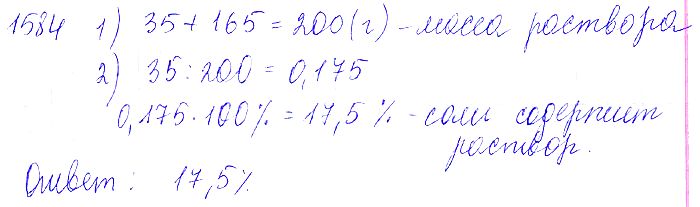 1584 1) 35 + 165 = 200 (г) - масса раствора
2) 35 : 200 = 0,175
0,175 · 100% = 17,5 % - соли содержит
раствор.
Ответ: 17,5%